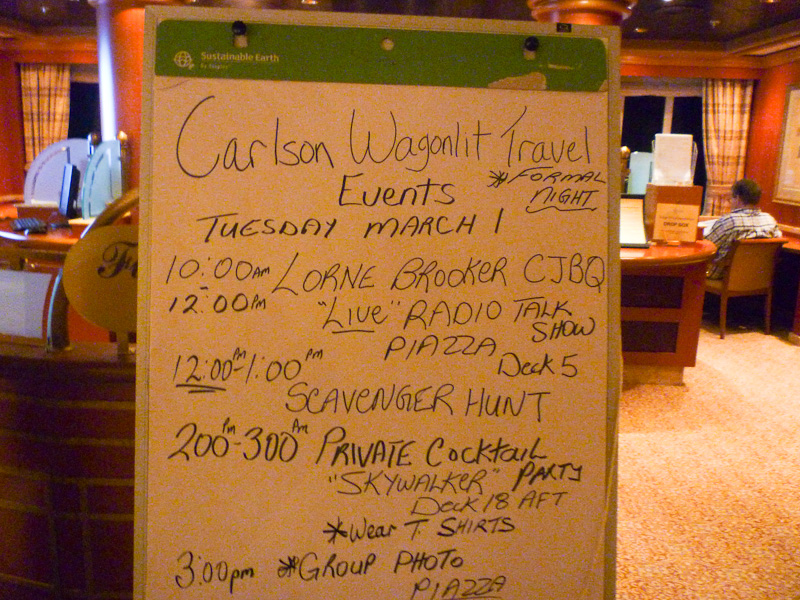 Sustainable Earth
Carlson Wagonlit Travel
*FORMAL
Events NIGHT
TUESDAY MARCH 1
10:00 Am LORNE BROOKER CJBQ
12:00 Pm "Live" RADIO TALK
SHOW
PIAZZA Deck 5
12:00 Pm - 1:00 pm
SCAVENGER HUNT
200 Pm - 300 Am PRIVATE COCKTAIL
"SKYWALKER" PARTY
Deck 18 AFT
*Wear T. SHIRTS
3:00pm *GROUP PHOTO
PIAZZA
DROP BOX